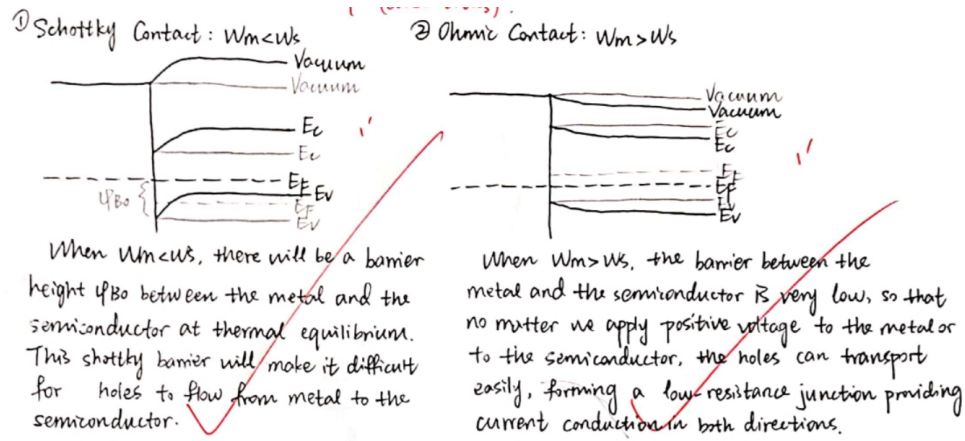 ① Schottky Contact: Wm<Ws
Vacuum
Vacuum
Ec
Ec
EF
Ev
EF
Ev
φB0
1'
When Wm<Ws, there will be a barrier
height φB0 between the metal and the
semiconductor at thermal equilibrium.
This shottky barrier will make it difficult
for holes to flow from metal to the
semiconductor.
② Ohmic Contact: Wm>Ws
Vacuum
Vacuum
Ec
Ec
EF
EF
Ev
Ev
1'
When Wm>Ws, the barrier between the
metal and the semiconductor is very low, so that
no matter we apply positive voltage to the metal or
to the semiconductor, the holes can transport
easily, forming a low-resistance junction providing
current conduction in both directions.